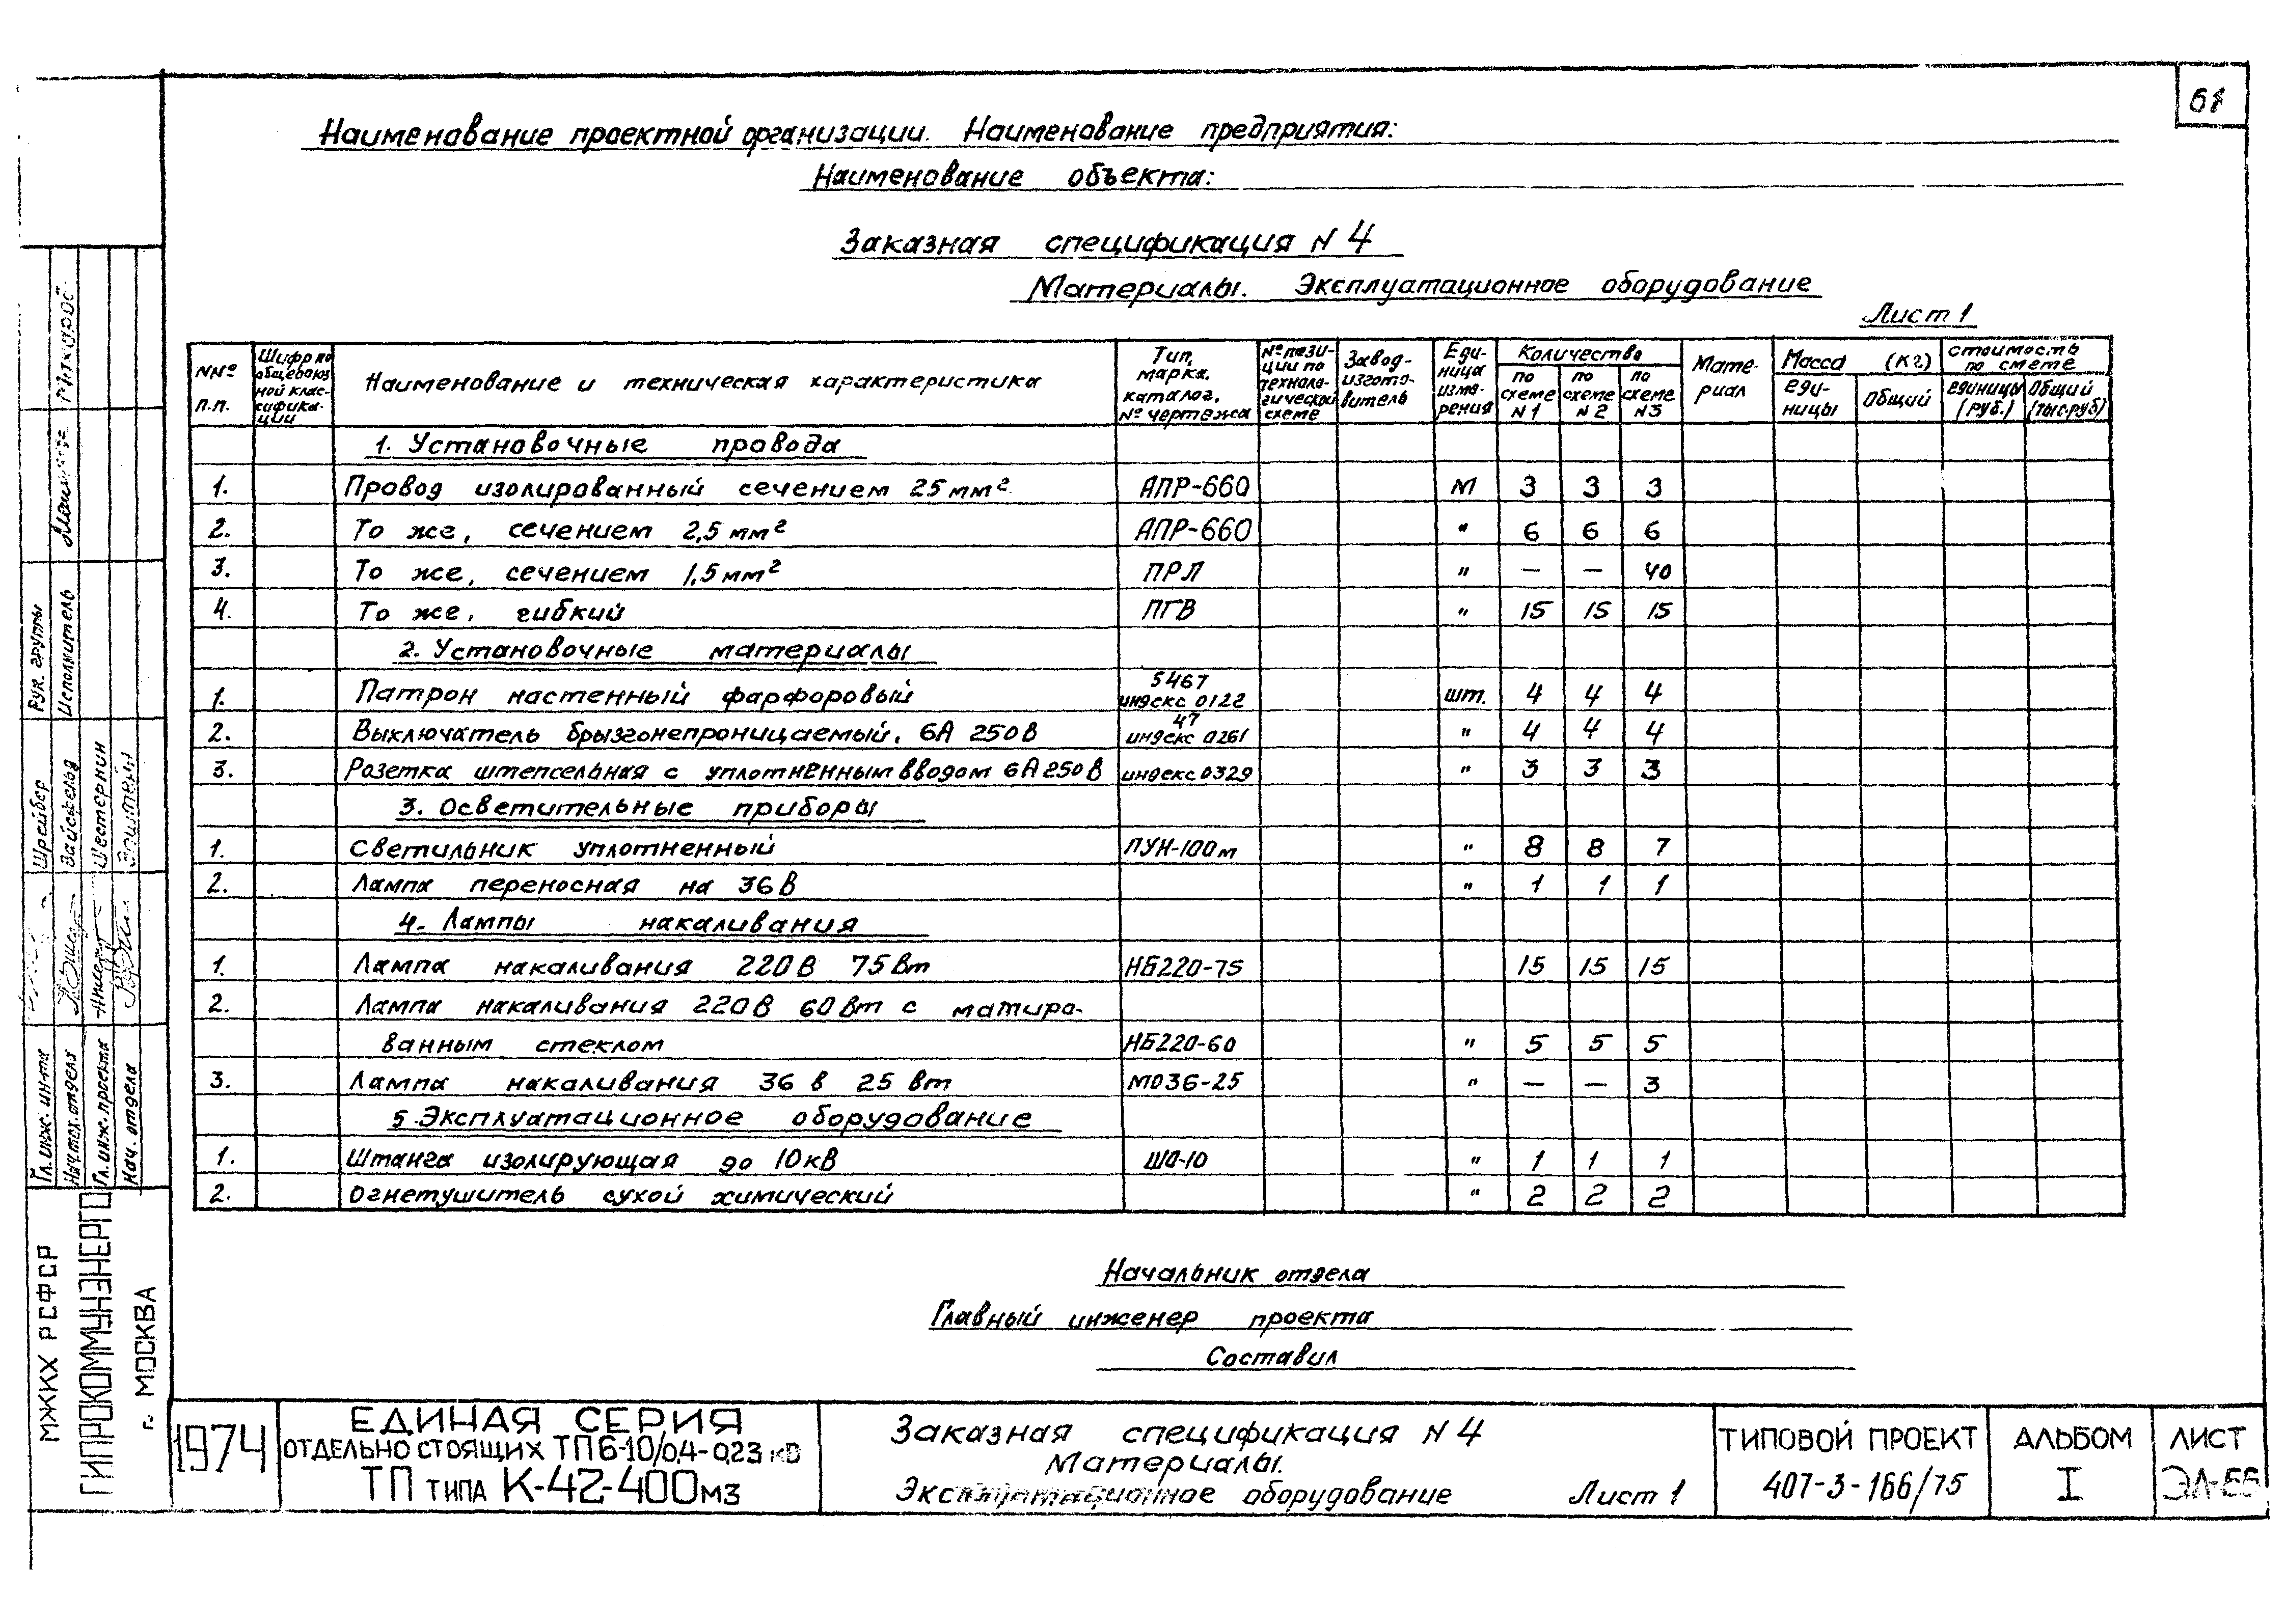 61
Наименование проектной организации. Наименование предприятия:
Наименование объекта:
Заказная спецификация N 4
Материалы. Эксплуатационное оборудование
Лист 1
NNº п.п. | Шифр по общесоюзной классификации | Наименование и техническая характеристика | Тип, марка, каталог, Nº чертежа | Nº позиции по технологической схеме | Завод-изготовитель | Единица измерения | Количество по схеме N1 | по схеме N2 | по схеме N3 | Материал | Масса (кг) единицы | общий | Стоимость по смете единицы (руб.) | Общий (тыс.руб)
1. Установочные провода
1. Провод изолированный сечением 25 мм² АПР-660 м 3 3 3
2. То же, сечением 2,5 мм² АПР-660 " 6 6 6
3. То же, сечением 1,5 мм² ПРЛ " — — 40
4. То же, гибкий ПГВ " 15 15 15
2. Установочные материалы
1. Патрон настенный фарфоровый 5467 индекс 0122 шт. 4 4 4
2. Выключатель брызгонепроницаемый, 6А 250В 47 индекс 0261 " 4 4 4
3. Розетка штепсельная с уплотненным вводом 6А 250В индекс 0329 " 3 3 3
3. Осветительные приборы
1. Светильник уплотненный ПУН-100м " 8 8 7
2. Лампа переносная на 36В " 1 1 1
4. Лампы накаливания
1. Лампа накаливания 220В 75Вт НБ220-75 15 15 15
2. Лампа накаливания 220В 60Вт с матиро-
ванным стеклом НБ220-60 " 5 5 5
3. Лампа накаливания 36 в 25 вт МО36-25 " — — 3
5. Эксплуатационное оборудование
1. Штанга изолирующая до 10кВ ШО-10 " 1 1 1
2. Огнетушитель сухой химический " 2 2 2
Начальник отдела
Главный инженер проекта
Составил
1974
ЕДИНАЯ СЕРИЯ
ОТДЕЛЬНО СТОЯЩИХ ТП 6-10/0,4-0,23 кВ
ТП ТИПА К-42-400 м3
Заказная спецификация N 4
Материалы.
Эксплуатационное оборудование Лист 1
ТИПОВОЙ ПРОЕКТ
407-3-166/75
АЛЬБОМ
I
ЛИСТ
МЖКХ РСФСР
ГИПРОКОММУНЭНЕРГО
г. МОСКВА
Гл. инж. ин-та Шрейбер
Нач. тех. отдела
Гл. инж. проекта Шестернин
Нач. отдела
Рук. группы
Исполнитель